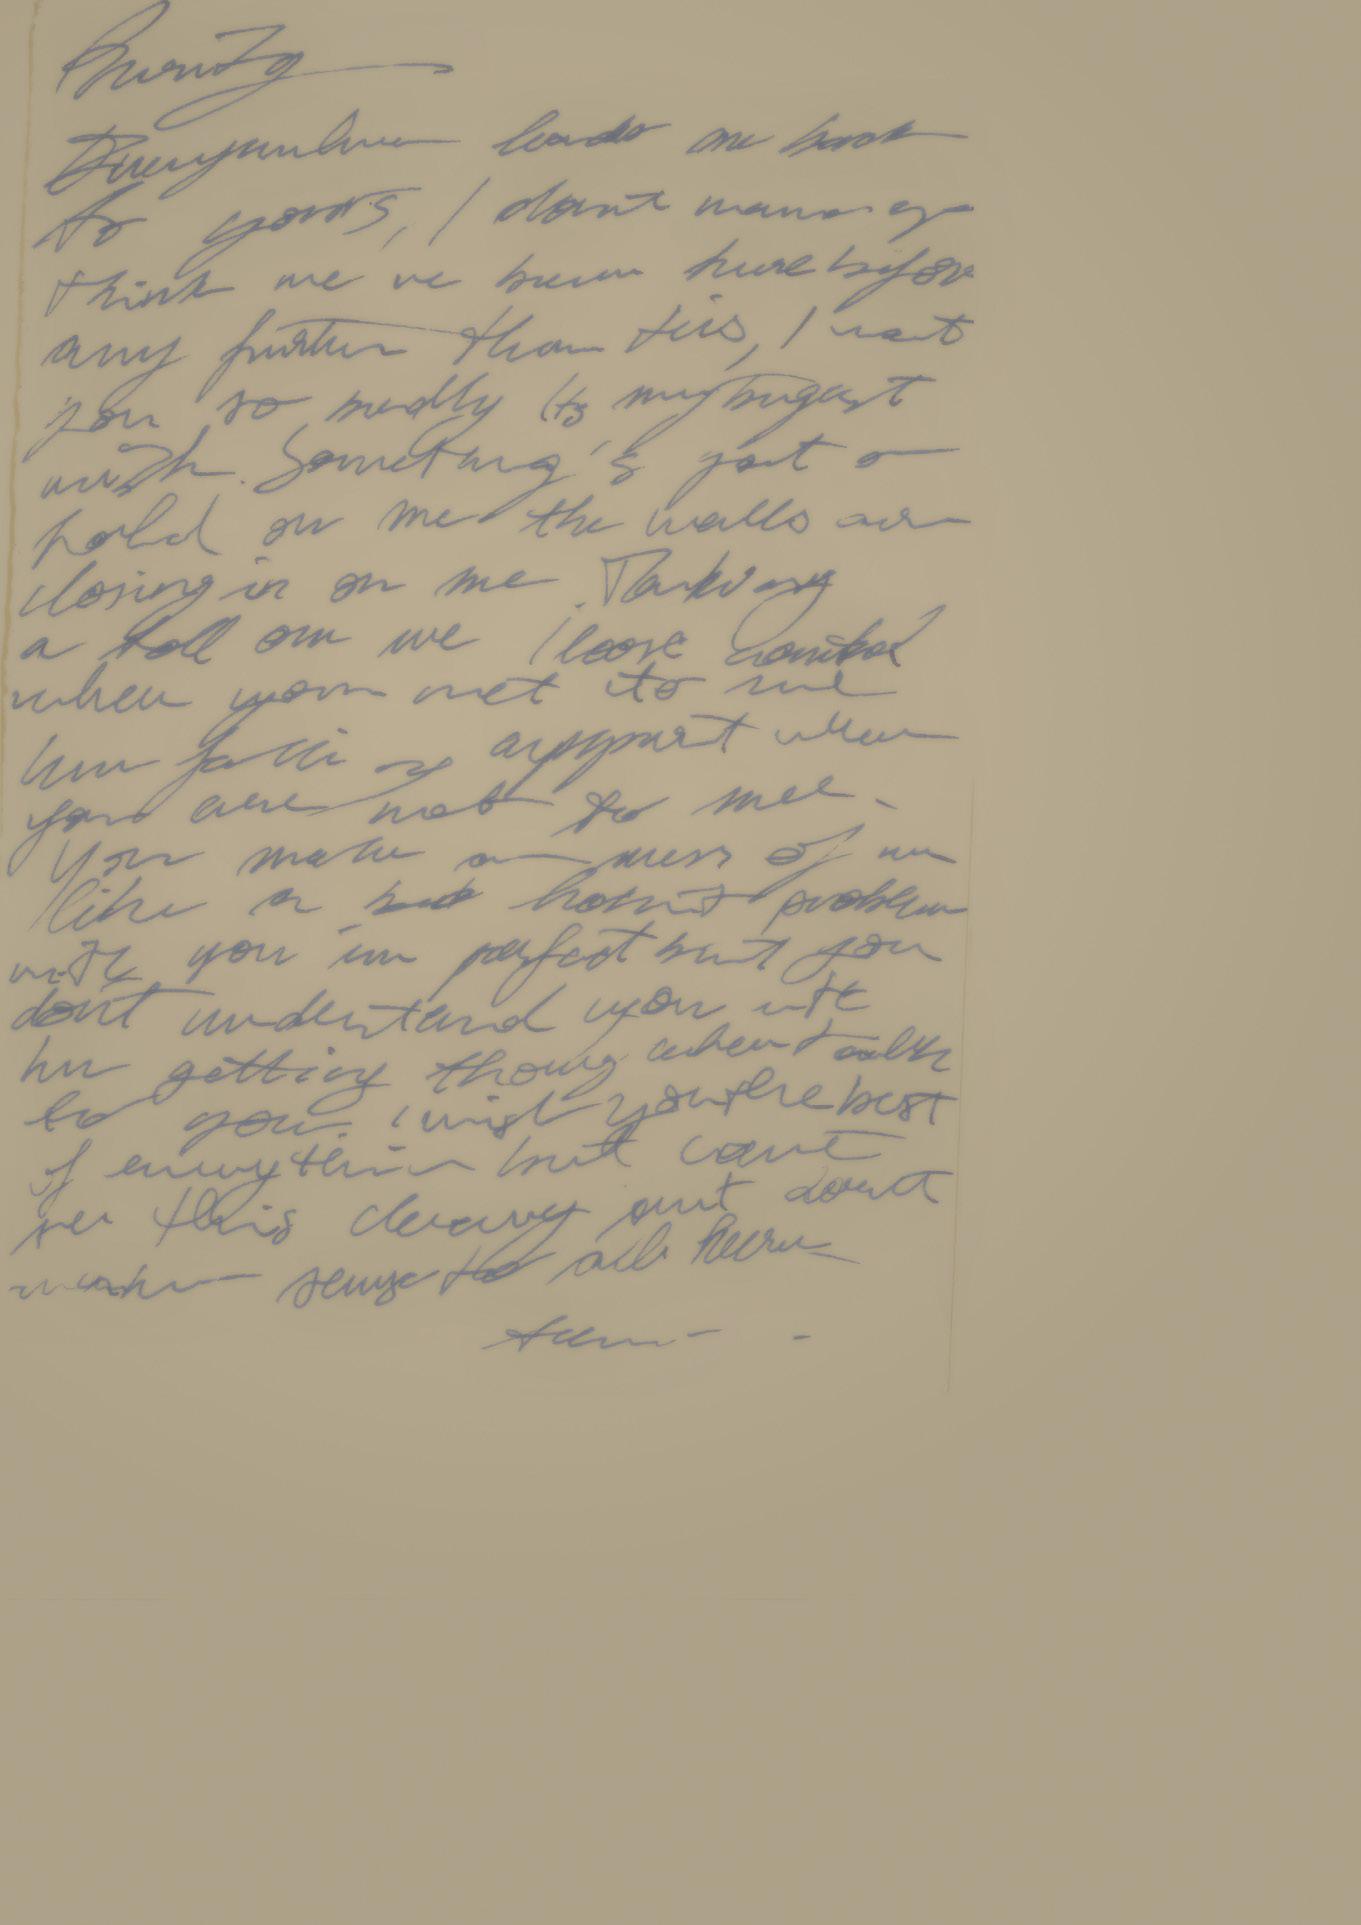 Purity
Everywhere leads me back
to yours, I don't wanna go
think we ve been here before
any further than this, I want
you so madly its my bigest
wish. Something's got a
hold on me the walls are
closing in on me. Taking
a toll on me I loose control
when your not to me
Im falling appart when
you are not to mee.
You make a mess of me
like a problem
with you im perfect but you
dont understand you
Im getting when talk
to you. I wish you the best
of everythin but cant
see this clearly and dont
make sense to